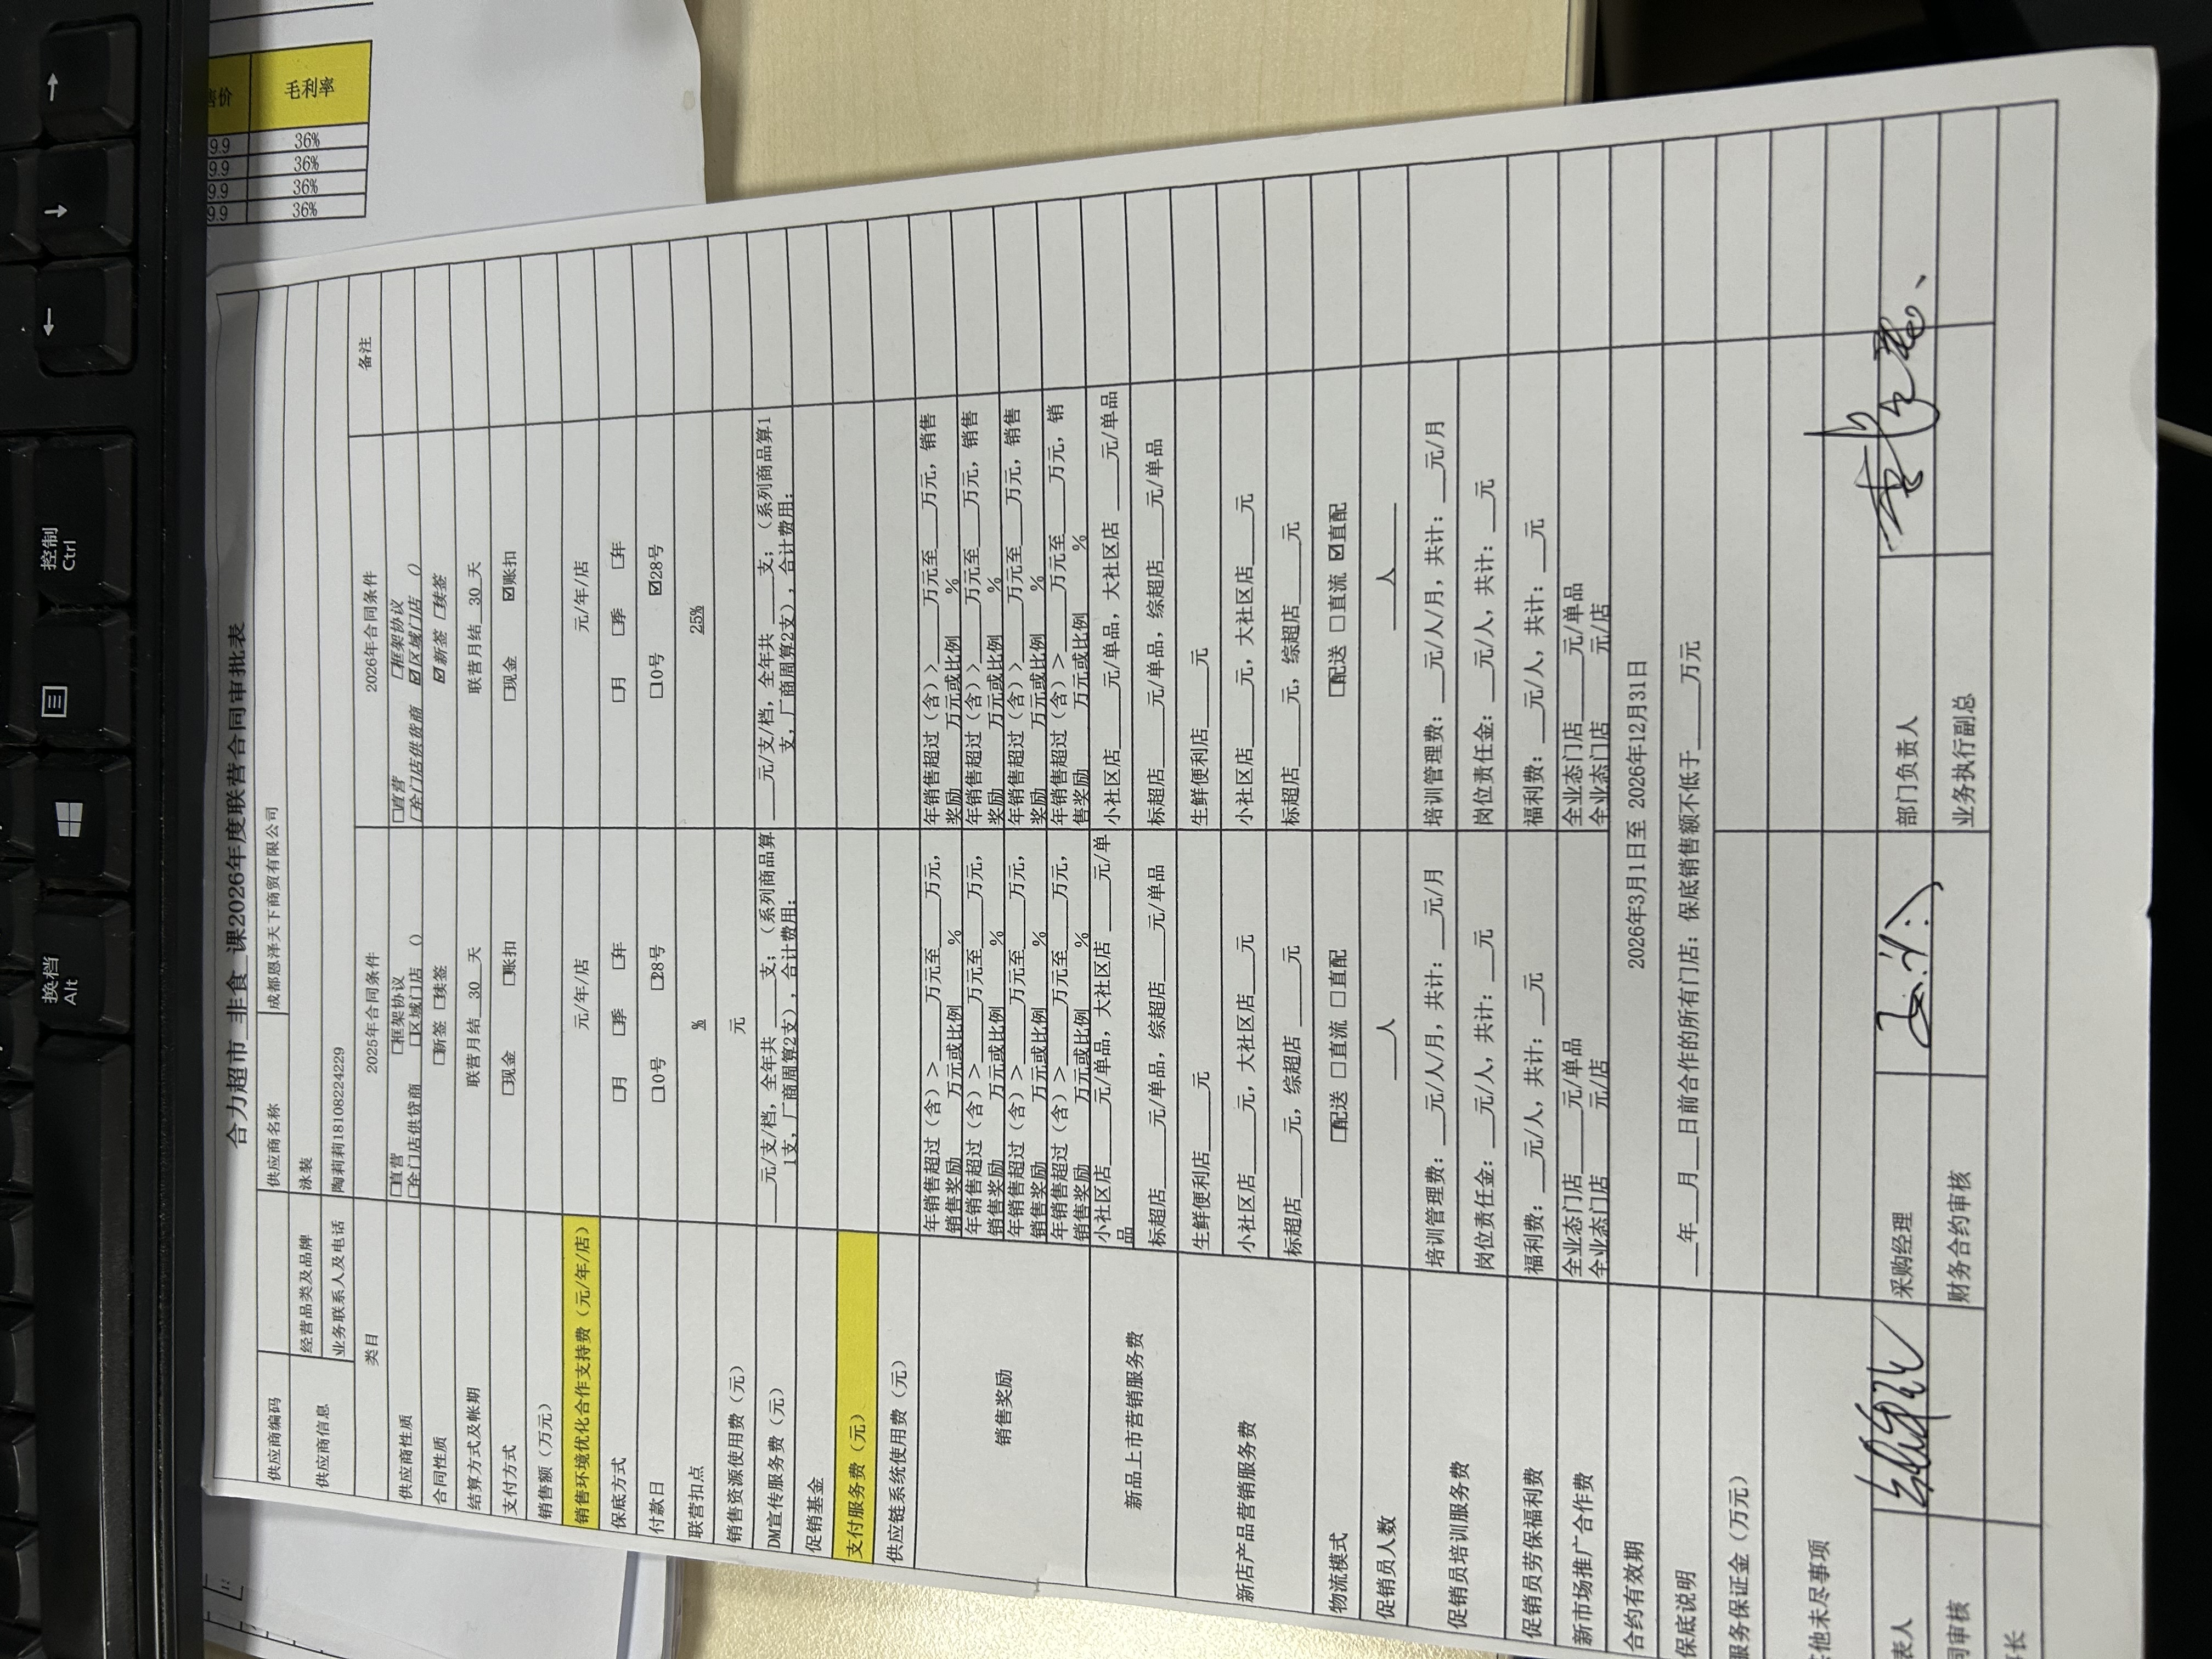 合力超市_非食_课2026年度联营合同审批表
供应商编码 供应商名称 成都恩泽天下商贸有限公司
供应商信息 经营品类及品牌 泳装
业务联系人及电话 陶莉莉18108224229
类目 2025年合同条件 2026年合同条件 备注
供应商性质 □直营 □框架协议 □全门店供贷商 □区域门店 () □直营 □框架协议 □全门店供货商 ☑区域门店 ()
合同性质 □新签 □续签 ☑新签 □续签
结算方式及帐期 联营月结 30 天 联营月结 30 天
支付方式 □现金 □账扣 □现金 ☑账扣
销售额（万元）
销售环境优化合作支持费（元/年/店） 元/年/店 元/年/店
保底方式 □月 □季 □年 □月 □季 □年
付款日 □10号 □28号 □10号 ☑28号
联营扣点 % 25%
销售资源使用费（元） 元
DM宣传服务费（元） ___元/支/档，全年共___支；（系列商品算1支，厂商周算2支），合计费用： ___元/支/档，全年共___支；（系列商品算1支，厂商周算2支），合计费用：
促销基金
支付服务费（元）
供应链系统使用费（元）
销售奖励
年销售超过（含）>___万元至___万元，销售奖励___万元或比例___% 年销售超过（含）>___万元至___万元，销售奖励___万元或比例___%
年销售超过（含）>___万元至___万元，销售奖励___万元或比例___% 年销售超过（含）>___万元至___万元，销售奖励___万元或比例___%
年销售超过（含）>___万元至___万元，销售奖励___万元或比例___% 年销售超过（含）>___万元至___万元，销售奖励___万元或比例___%
年销售超过（含）>___万元至___万元，销售奖励___万元或比例___% 年销售超过（含）>___万元至___万元，销售奖励___万元或比例___%
新品上市营销服务费
小社区店___元/单品，大社区店___元/单品 小社区店___元/单品，大社区店___元/单品
标超店___元/单品，综超店___元/单品 标超店___元/单品，综超店___元/单品
新店产品营销服务费
生鲜便利店___元 生鲜便利店___元
小社区店___元，大社区店___元 小社区店___元，大社区店___元
标超店___元，综超店___元 标超店___元，综超店___元
物流模式 □配送 □直流 □直配 □配送 □直流 ☑直配
促销员人数 ___人 ___人___
促销员培训服务费
培训管理费：___元/人/月，共计：___元/月 培训管理费：___元/人/月，共计：___元/月
岗位责任金：___元/人，共计：___元 岗位责任金：___元/人，共计：___元
促销员劳保福利费 福利费：___元/人，共计：___元 福利费：___元/人，共计：___元
新市场推广合作费
全业态门店___元/单品 全业态门店___元/单品
全业态门店___元/店 全业态门店___元/店
合约有效期 2026年3月1日至 2026年12月31日
保底说明 ___年___月___日前合作的所有门店：保底销售额不低于___万元
服务保证金（万元）
他未尽事项
表人 采购经理 部门负责人
同审核 财务合约审核 业务执行副总
长
售价 毛利率
9.9 36%
9.9 36%
9.9 36%
9.9 36%
换档
Alt
控制
Ctrl